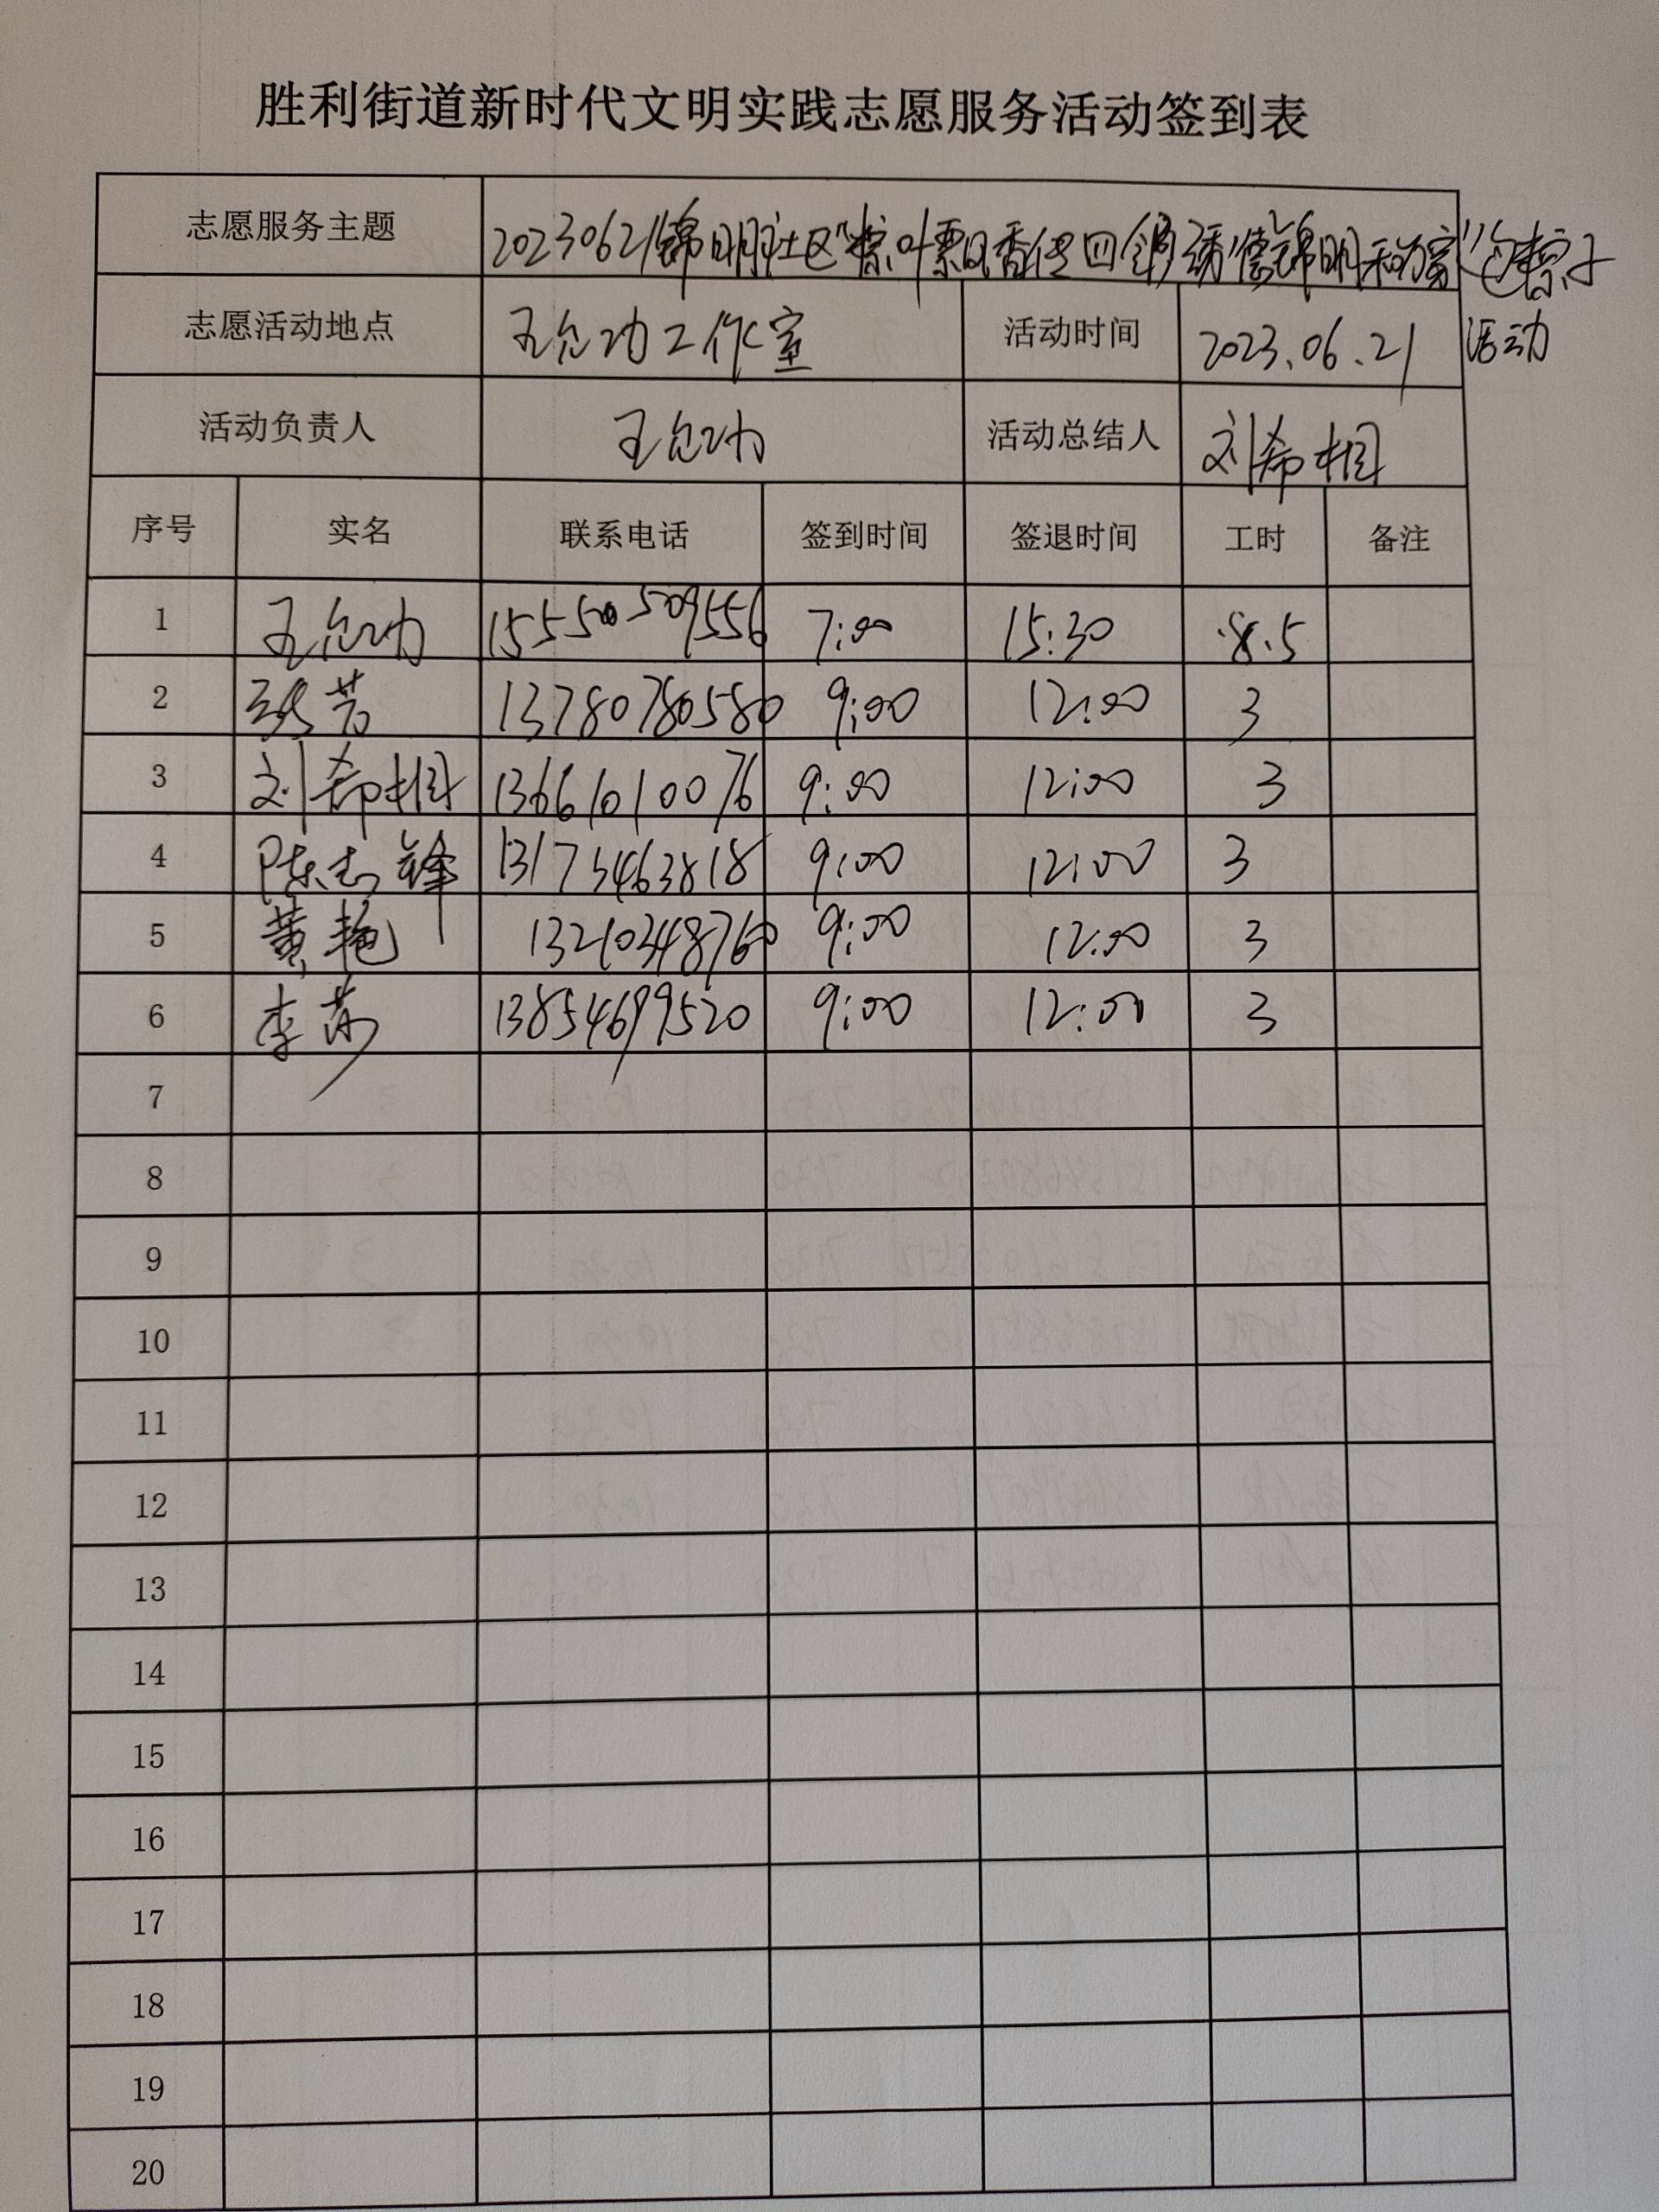 胜利街道新时代文明实践志愿服务活动签到表
志愿服务主题 20230621锦明社区"粽叶飘香传四邻 德锦明和万家"包粽子
活动
志愿活动地点 王允功工作室 活动时间 2023.06.21
活动负责人 王允功 活动总结人 刘希相
序号 实名 联系电话 签到时间 签退时间 工时 备注
1 王允功 15550509556 7:00 15:30 8.5
2 芳 13780780580 9:00 12:00 3
3 刘希相 13661010076 9:00 12:00 3
4 陈志锋 13175463818 9:00 12:00 3
5 黄艳 13210348760 9:00 12:00 3
6 李 13854699520 9:00 12:00 3
7
8
9
10
11
12
13
14
15
16
17
18
19
20